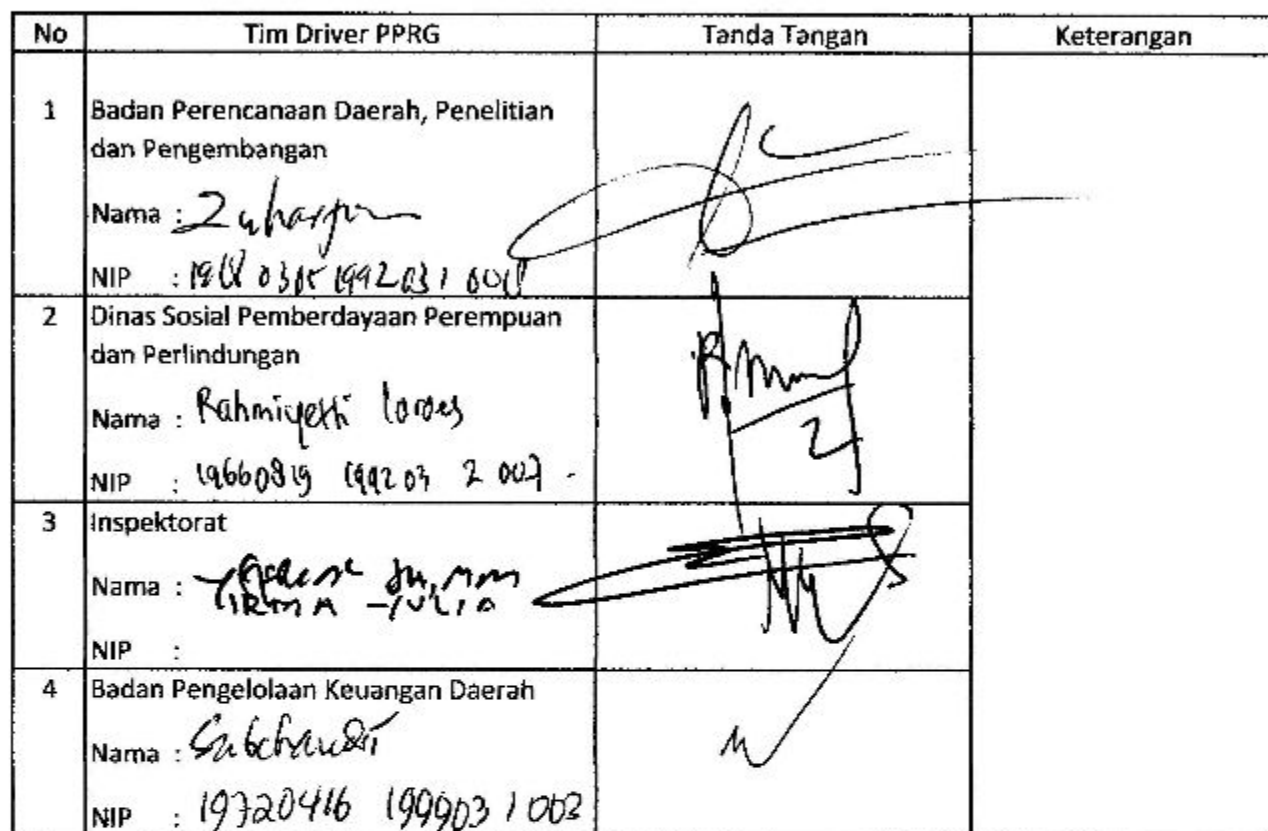 No Tim Driver PPRG Tanda Tangan Keterangan
1 Badan Perencanaan Daerah, Penelitian
dan Pengembangan
Nama :
NIP :
2 Dinas Sosial Pemberdayaan Perempuan
dan Perlindungan
Nama : Rahmiyetti
NIP : 19660819 199203 2 007
3 Inspektorat
Nama :
IRMA YULIA
NIP :
4 Badan Pengelolaan Keuangan Daerah
Nama :
NIP : 19720416 199903 1 003